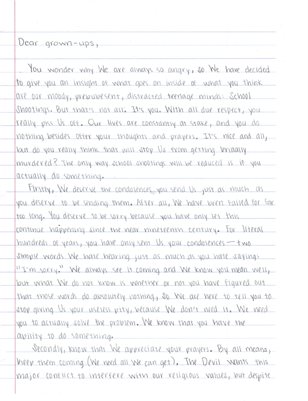 Dear grown-ups,
You wonder why we are always so angry, so we have decided
to give you an insight of what goes on inside of what you think
are our moody, prepubescent, distracted teenage minds. School
shootings. But that's not all. It's you. With all due respect, you
really piss us off. Our lives are constantly at stake, and you do
nothing besides offer your thoughts and prayers. It's nice and all,
but do you really think that will stop us from getting brutally
murdered? The only way school shootings will be reduced is if you
actually do something.
Firstly, we deserve the condolences you send us just as much as
you deserve to be sending them. After all, we have been failed for far
too long. You deserve to be sorry because you have only let this
continue happening since the near nineteenth century. For literal
hundreds of years, you have only sent us your condolences — two
simple words we hate hearing just as much as you hate saying:
"I'm sorry." We always see it coming and we know you mean well,
but what we do not know is whether or not you have figured out
that those words do absolutely nothing, so we are here to tell you to
stop giving us your useless pity, because we don't need it. We need
you to actually solve the problem. We know that you have the
ability to do something.
Secondly, know that we appreciate your prayers. By all means,
keep them coming (we need all we can get). The Devil wants this
major conflict to interfere with our religious values, but despite